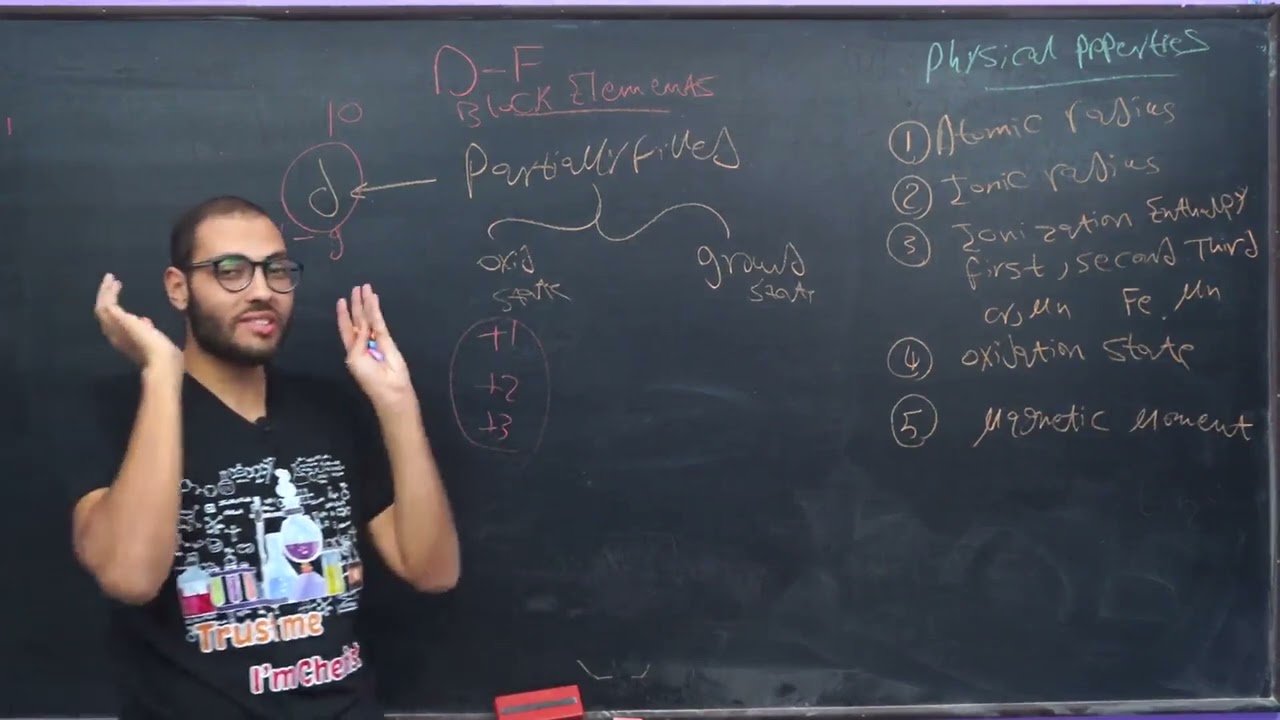 D-F
Block Elements
10
d
1-9
Partially filled
oxid
state
ground
state
+1
+2
+3
Physical Properties
① Atomic radius
② Ionic radius
③ Ionization Enthalpy
first, second Third
Cr, Mn Fe. Mn
④ oxidation state
⑤ Magnetic Moment
Trust me
I'm Che